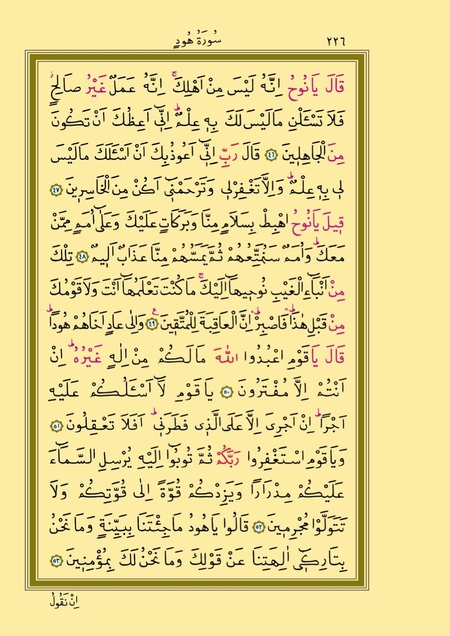 ٢٢٦
سُورَةُ هُودٍ
قَالَ يَانُوحُ اِنَّهُ لَيْسَ مِنْ اَهْلِكَۚ اِنَّهُ عَمَلٌ غَيْرُ صَالِحٍۗ
فَلَا تَسْـَٔلْنِ مَا لَيْسَ لَكَ بِهٖ عِلْمٌۜ اِنّٖٓي اَعِظُكَ اَنْ تَكُونَ
مِنَ الْجَاهِلٖينَ ﴿٤٦﴾ قَالَ رَبِّ اِنّٖٓي اَعُوذُ بِكَ اَنْ اَسْـَٔلَكَ مَا لَيْسَ
لٖي بِهٖ عِلْمٌۜ وَاِلَّا تَغْفِرْلٖي وَتَرْحَمْنٖٓي اَكُنْ مِنَ الْخَاسِرٖينَ ﴿٤٧﴾
قٖيلَ يَانُوحُ اهْبِطْ بِسَلَامٍ مِنَّا وَبَرَكَاتٍ عَلَيْكَ وَعَلٰٓى اُمَمٍ مِمَّنْ
مَعَكَۜ وَاُمَمٌ سَنُمَتِّعُهُمْ ثُمَّ يَمَسُّهُمْ مِنَّا عَذَابٌ اَلٖيمٌ ﴿٤٨﴾ تِلْكَ
مِنْ اَنْبَٓاءِ الْغَيْبِ نُوحٖيهَٓا اِلَيْكَۚ مَا كُنْتَ تَعْلَمُهَٓا اَنْتَ وَلَا قَوْمُكَ
مِنْ قَبْلِ هٰذَاۜ فَاصْبِرْۜ اِنَّ الْعَاقِبَةَ لِلْمُتَّقٖينَ ﴿٤٩﴾ وَاِلٰى عَادٍ اَخَاهُمْ هُودًاۜ
قَالَ يَا قَوْمِ اعْبُدُوا اللّٰهَ مَا لَكُمْ مِنْ اِلٰهٍ غَيْرُهُۜ اِنْ
اَنْتُمْ اِلَّا مُفْتَرُونَ ﴿٥٠﴾ يَا قَوْمِ لَٓا اَسْـَٔلُكُمْ عَلَيْهِ
اَجْرًاۜ اِنْ اَجْرِيَ اِلَّا عَلَى الَّذٖي فَطَرَنٖيۜ اَفَلَا تَعْقِلُونَ ﴿٥١﴾
وَيَا قَوْمِ اسْتَغْفِرُوا رَبَّكُمْ ثُمَّ تُوبُٓوا اِلَيْهِ يُرْسِلِ السَّمَٓاءَ
عَلَيْكُمْ مِدْرَارًا وَيَزِدْكُمْ قُوَّةً اِلٰى قُوَّتِكُمْ وَلَا
تَتَوَلَّوْا مُجْرِمٖينَ ﴿٥٢﴾ قَالُوا يَا هُودُ مَا جِئْتَنَا بِبَيِّنَةٍ وَمَا نَحْنُ
بِتَارِكٖٓي اٰلِهَتِنَا عَنْ قَوْلِكَ وَمَا نَحْنُ لَكَ بِمُؤْمِنٖينَ ﴿٥٣﴾
اِنْ نَقُولُ